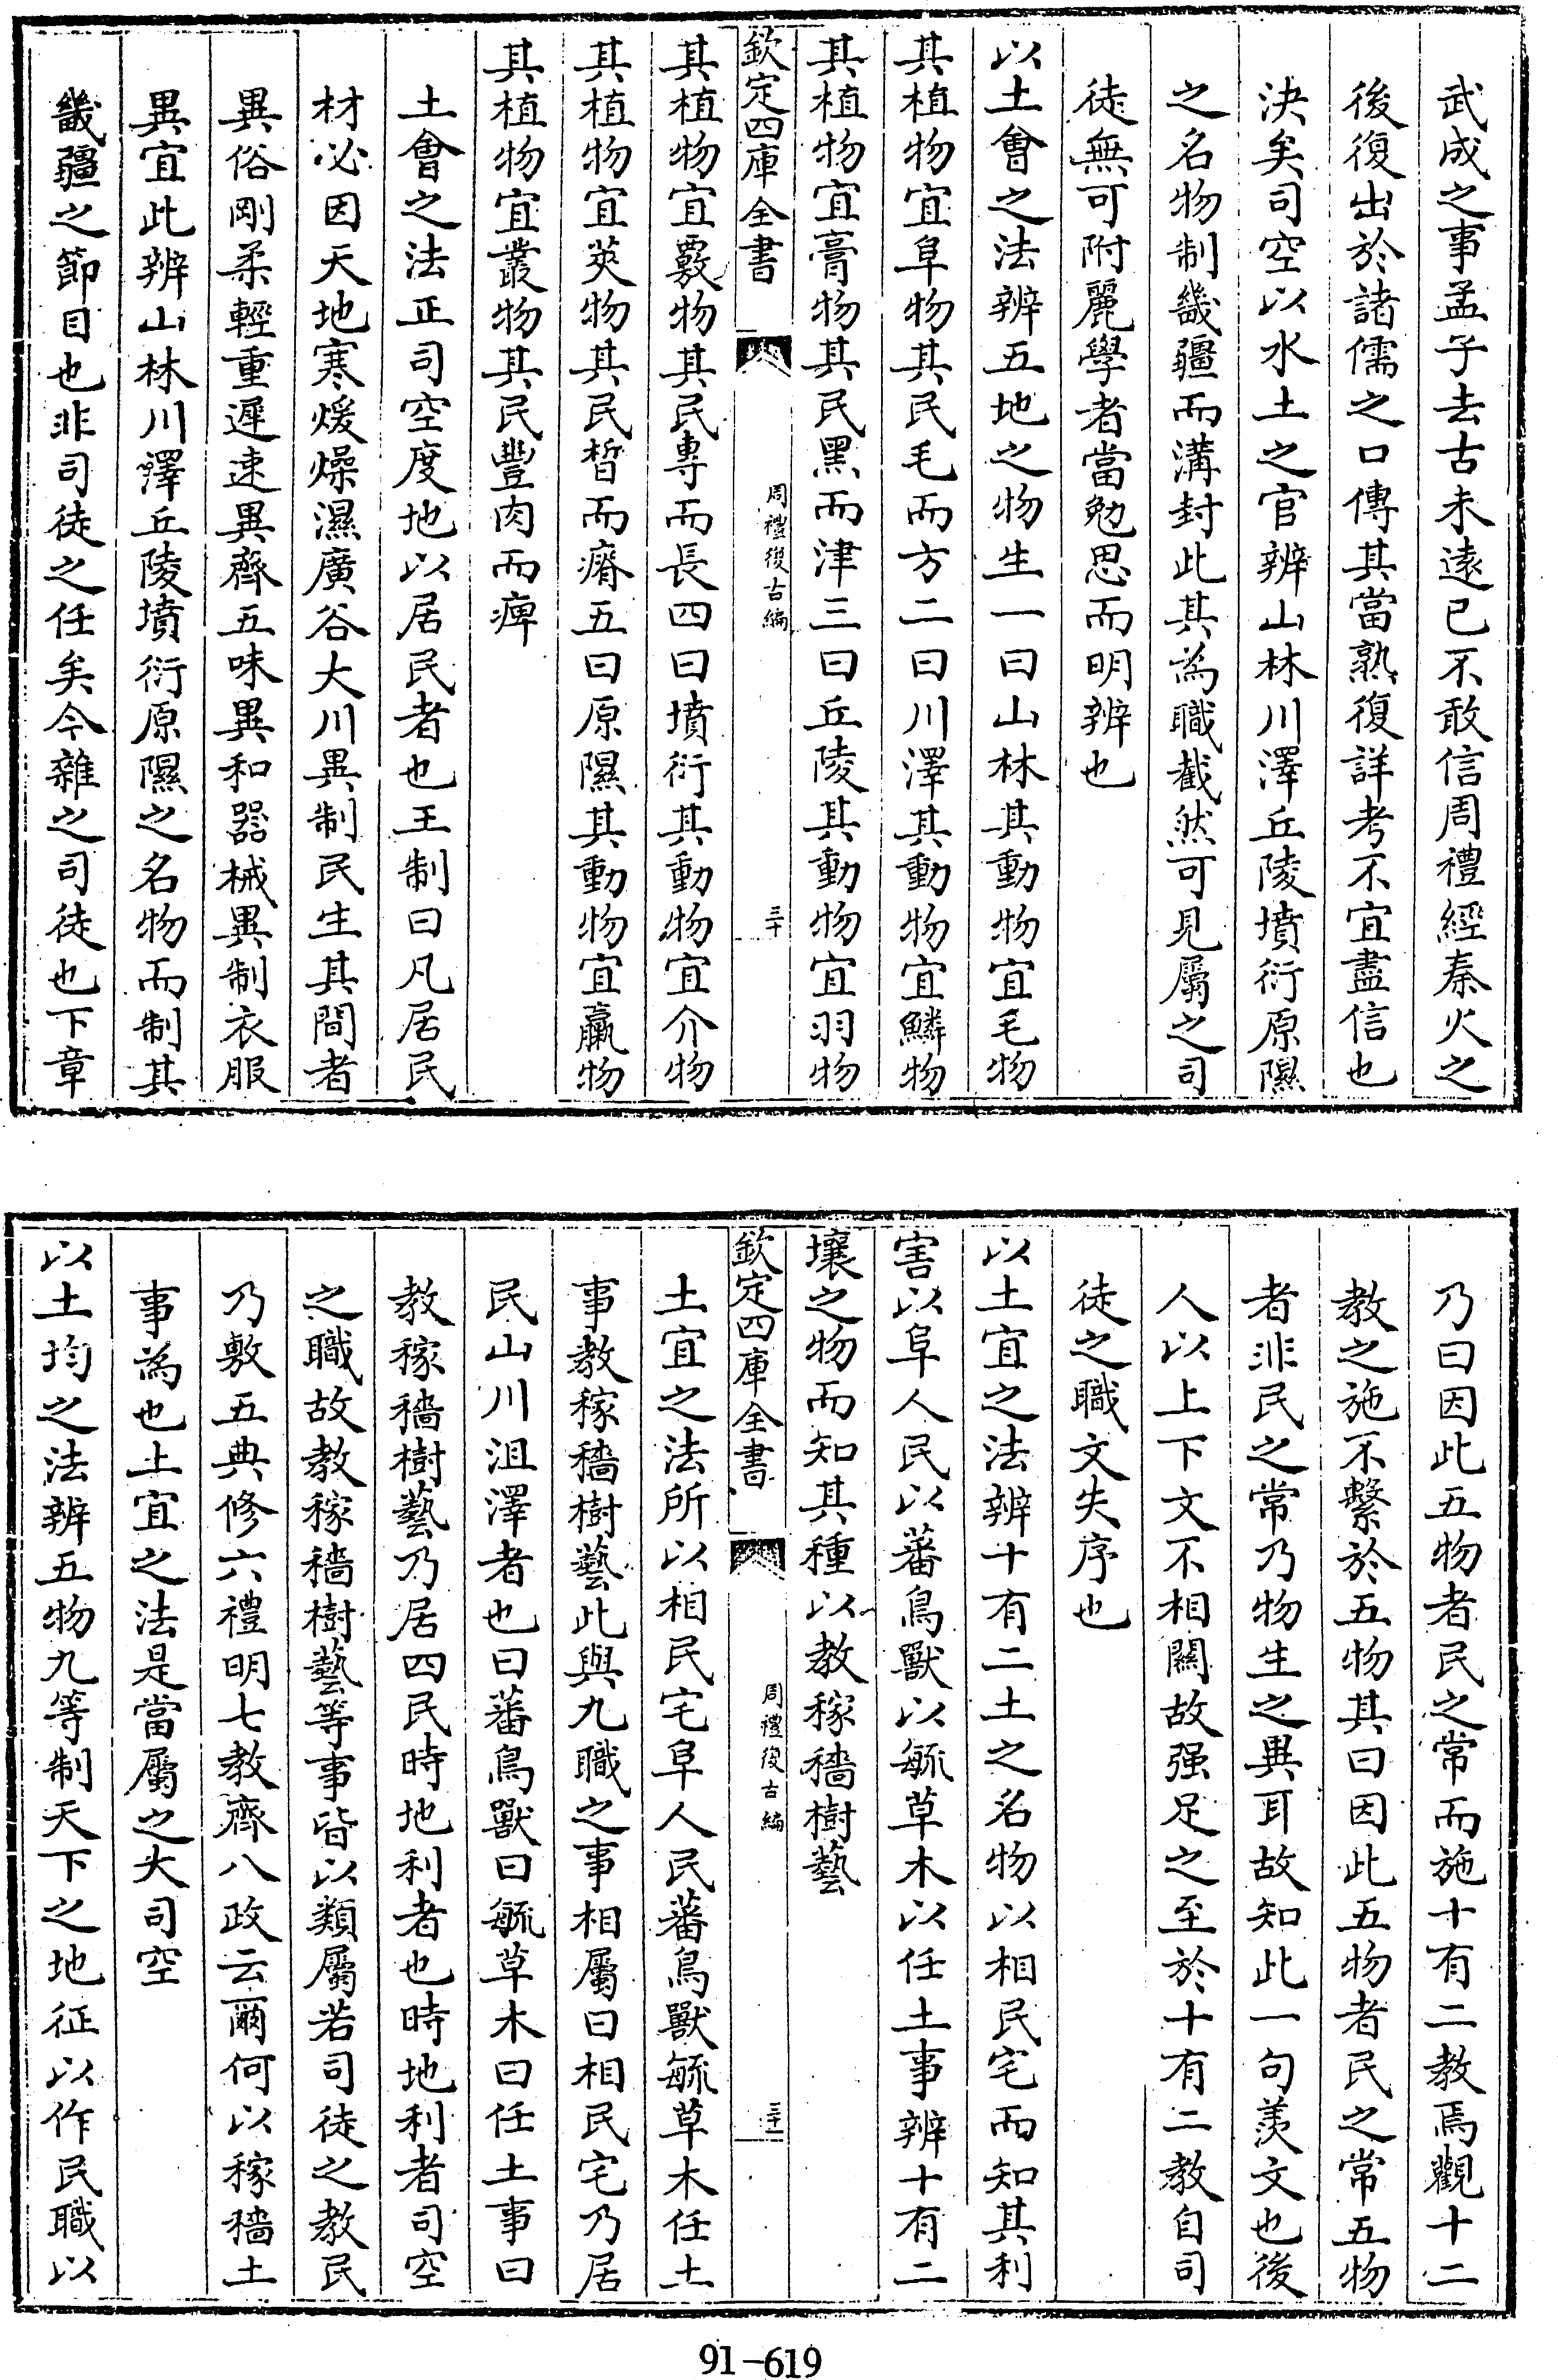 武成之事孟子去古未遠已不敢信周禮經秦火之
後復出於諸儒之口傳其當熟復詳考不宜盡信也
決矣司空以水土之官辨山林川澤丘陵墳衍原隰
之名物制畿疆而溝封此其為職截然可見屬之司
徒無可附麗學者當勉思而明辨也
以土會之法辨五地之物生一曰山林其動物宜毛物
其植物宜阜物其民毛而方二曰川澤其動物宜鱗物
其植物宜膏物其民黑而津三曰丘陵其動物宜羽物
欽定四庫全書 周禮復古編 三十
其植物宜覈物其民專而長四曰墳衍其動物宜介物
其植物宜莢物其民晳而瘠五曰原隰其動物宜臝物
其植物宜叢物其民豐肉而痺
土會之法正司空度地以居民者也王制曰凡居民
材必因天地寒煖燥濕廣谷大川異制民生其間者
異俗剛柔輕重遲速異齊五味異和器械異制衣服
異宜此辨山林川澤丘陵墳衍原隰之名物而制其
畿疆之節目也非司徒之任矣今雜之司徒也下章
乃曰因此五物者民之常而施十有二教焉觀十二
教之施不繫於五物其曰因此五物者民之常五物
者非民之常乃物生之異耳故知此一句羨文也後
人以上下文不相關故强足之至於十有二教自司
徒之職文失序也
以土宜之法辨十有二土之名物以相民宅而知其利
害以阜人民以蕃鳥獸以毓草木以任土事辨十有二
壤之物而知其種以教稼穡樹藝
欽定四庫全書 周禮復古編 三十一
土宜之法所以相民宅阜人民蕃鳥獸毓草木任土
事教稼穡樹藝此與九職之事相屬曰相民宅乃居
民山川沮澤者也曰蕃鳥獸曰毓草木曰任土事曰
教稼穡樹藝乃居四民時地利者也時地利者司空
之職故教稼穡樹藝等事皆以類屬若司徒之教民
乃敷五典修六禮明七教齊八政云爾何以稼穡土
事為也土宜之法是當屬之大司空
以土均之法辨五物九等制天下之地征以作民職以
91-619